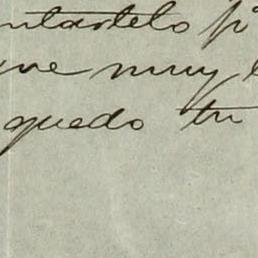 ntartelo p
ue muy
quedo tu